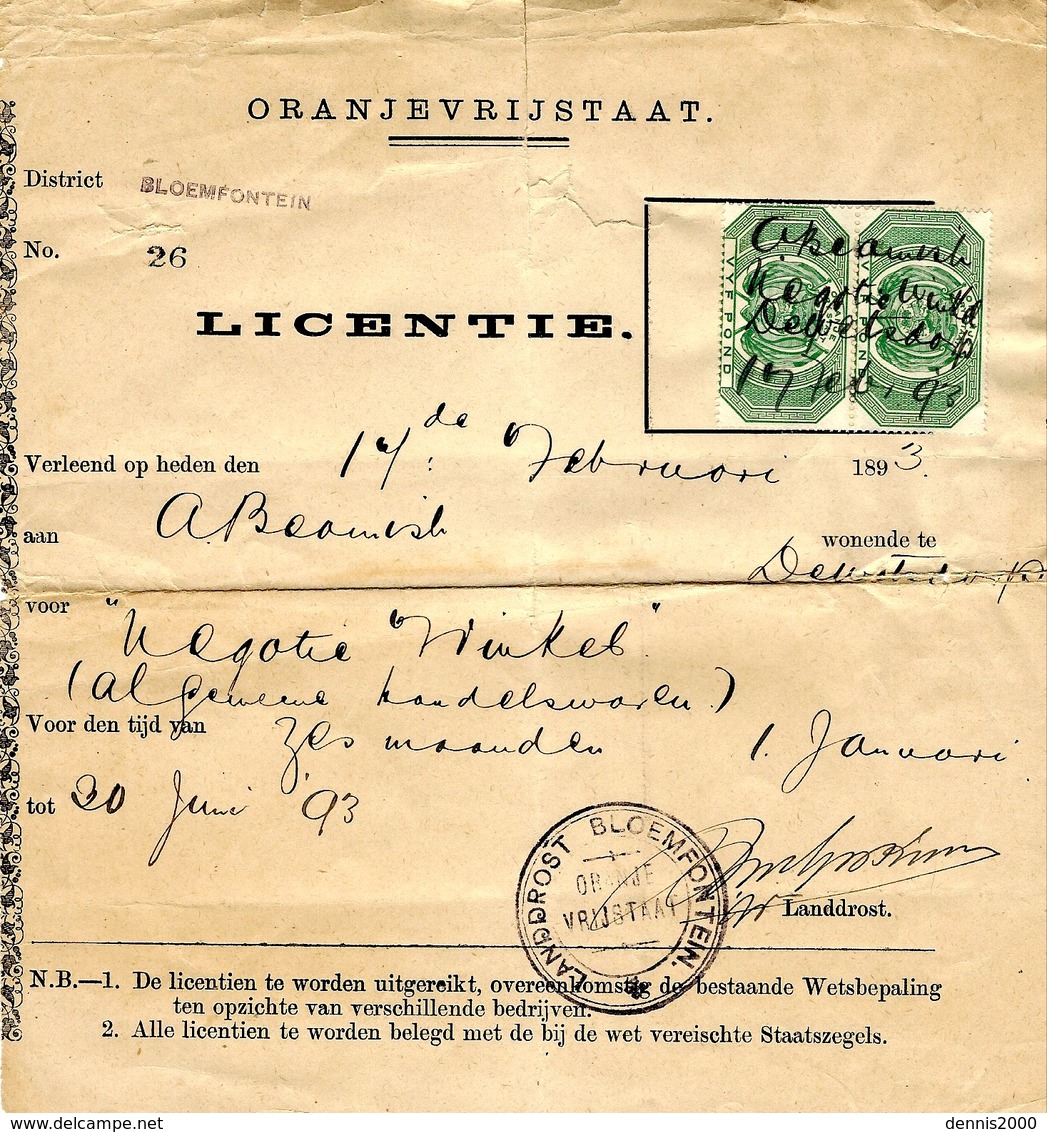 ORANJEVRIJSTAAT.
District BLOEMFONTEIN
No. 26
VYF POND
VYF POND
A Beamish
Negotie Winkel
Dewetsdorp
17 Feb. 93
LICENTIE.
Verleend op heden den 17de Februari 1893.
aan A Beamish wonende te
Dewetsdorp
voor "Negotie Winkel"
(algemeene handelswaren)
Voor den tijd van zes maanden 1. Januari
tot 30 Juni '93
LANDDROST BLOEMFONTEIN.
ORANJE
VRIJSTAAT
Landdrost.
N.B.—1. De licentien te worden uitgereikt, overeenkomstig de bestaande Wetsbepaling
ten opzichte van verschillende bedrijven.
2. Alle licentien te worden belegd met de bij de wet vereischte Staatszegels.
dennis2000